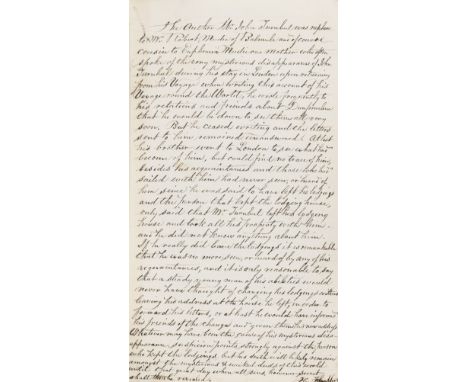 The Author Mr. John Turnbull was nephew
to Mr. Minister of and of course
cousin to Euphemia mother who often
spoke of the very mysterious disappearance of John
Turnbull during his stay in London upon returning
from his Voyage when writing this account of his
Voyage round the World, he wrote frequently to
his relations and friends about Dunfermline
that he would be down to see them all very
soon. But he ceased writing and the letters
sent to him remained unanswered. At last
his brother went to London to see what had
become of him, but could find no trace of him,
besides his acquaintances and those who had
sailed with him had never seen or heard of
him since he was said to have left his lodgings
and the person that kept the lodging house
only said that Mr. Turnbull left his lodging
house and took all his property with him
and he did not know anything about him
If he really did leave the lodgings it is remarkable
that he was no more seen, or heard of by any of his
acquaintances, and it is only reasonable to say
that a steady young man of his abilities would
never have thought of changing his lodgings without
leaving his address at the house he left, in order to
forward his letters, or at least he would have informed
his friends of the change and given them his new address
Whatever may have been the cause of his mysterious dis-
appearance suspicion points strongly against the person
who kept the lodgings, but his death will likely remain
amongst the mysteries & wicked deeds of this world
until that great day when all sins however secret
shall be revealed.